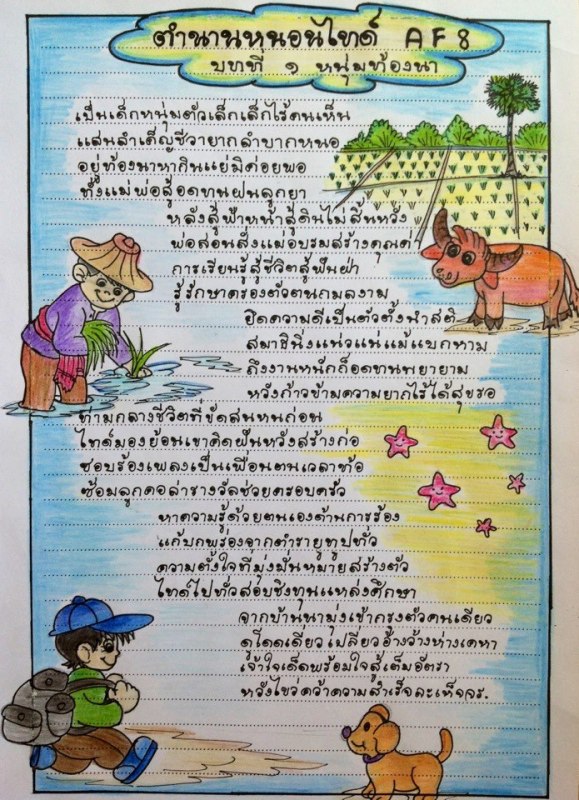 ตำนานหนอนไทด์ AF8
บทที่ ๑ หนุ่มท้องนา
เป็นเด็กหนุ่มตัวเล็กเล็กไร้คนเห็น
แสนลำเค็ญชีวายากลำบากหนอ
อยู่ท้องนาหากินแย่มิค่อยพอ
ทั้งแม่พ่อสู้อดทนฝนลูกยา
หลังสู้ฟ้าหน้าสู้ดินไม่สิ้นหวัง
พ่อสอนสั่งแม่อบรมสร้างคุณค่า
การเรียนรู้สู้ชีวิตสู้ฟันฝ่า
รู้รักษาครองตัวตนกมลงาม
ยึดความดีเป็นตัวตั้งนำสติ
สมาธินิ่งแน่วแน่แม้แบกหาม
ถึงงานหนักก็อดทนพยายาม
หวังก้าวข้ามความยากไร้ได้สุขรอ
ท่ามกลางชีวิตที่ขัดสนหนก่อน
ไทด์มองย้อนเขาคิดฝันหวังสร้างก่อ
ชอบร้องเพลงเป็นเพื่อนตนเวลาท้อ
ซ้อมลูกคอล่ารางวัลช่วยครอบครัว
หาความรู้ด้วยตนเองด้านการร้อง
แก้บกพร่องจากตำรายูทูปทั่ว
ความตั้งใจที่มุ่งมั่นหมายสร้างตัว
ไทด์ไปทั่วสอบชิงทุนแหล่งศึกษา
จากบ้านนามุ่งเข้ากรุงตัวคนเดียว
ดูโดดเดี่ยวเปลี่ยวอ้างว้างห่างเคหา
เจ้าใจเด็ดพร้อมใจสู้เต็มอัตรา
หวังไขว่คว้าความสำเร็จละเห็จจร.